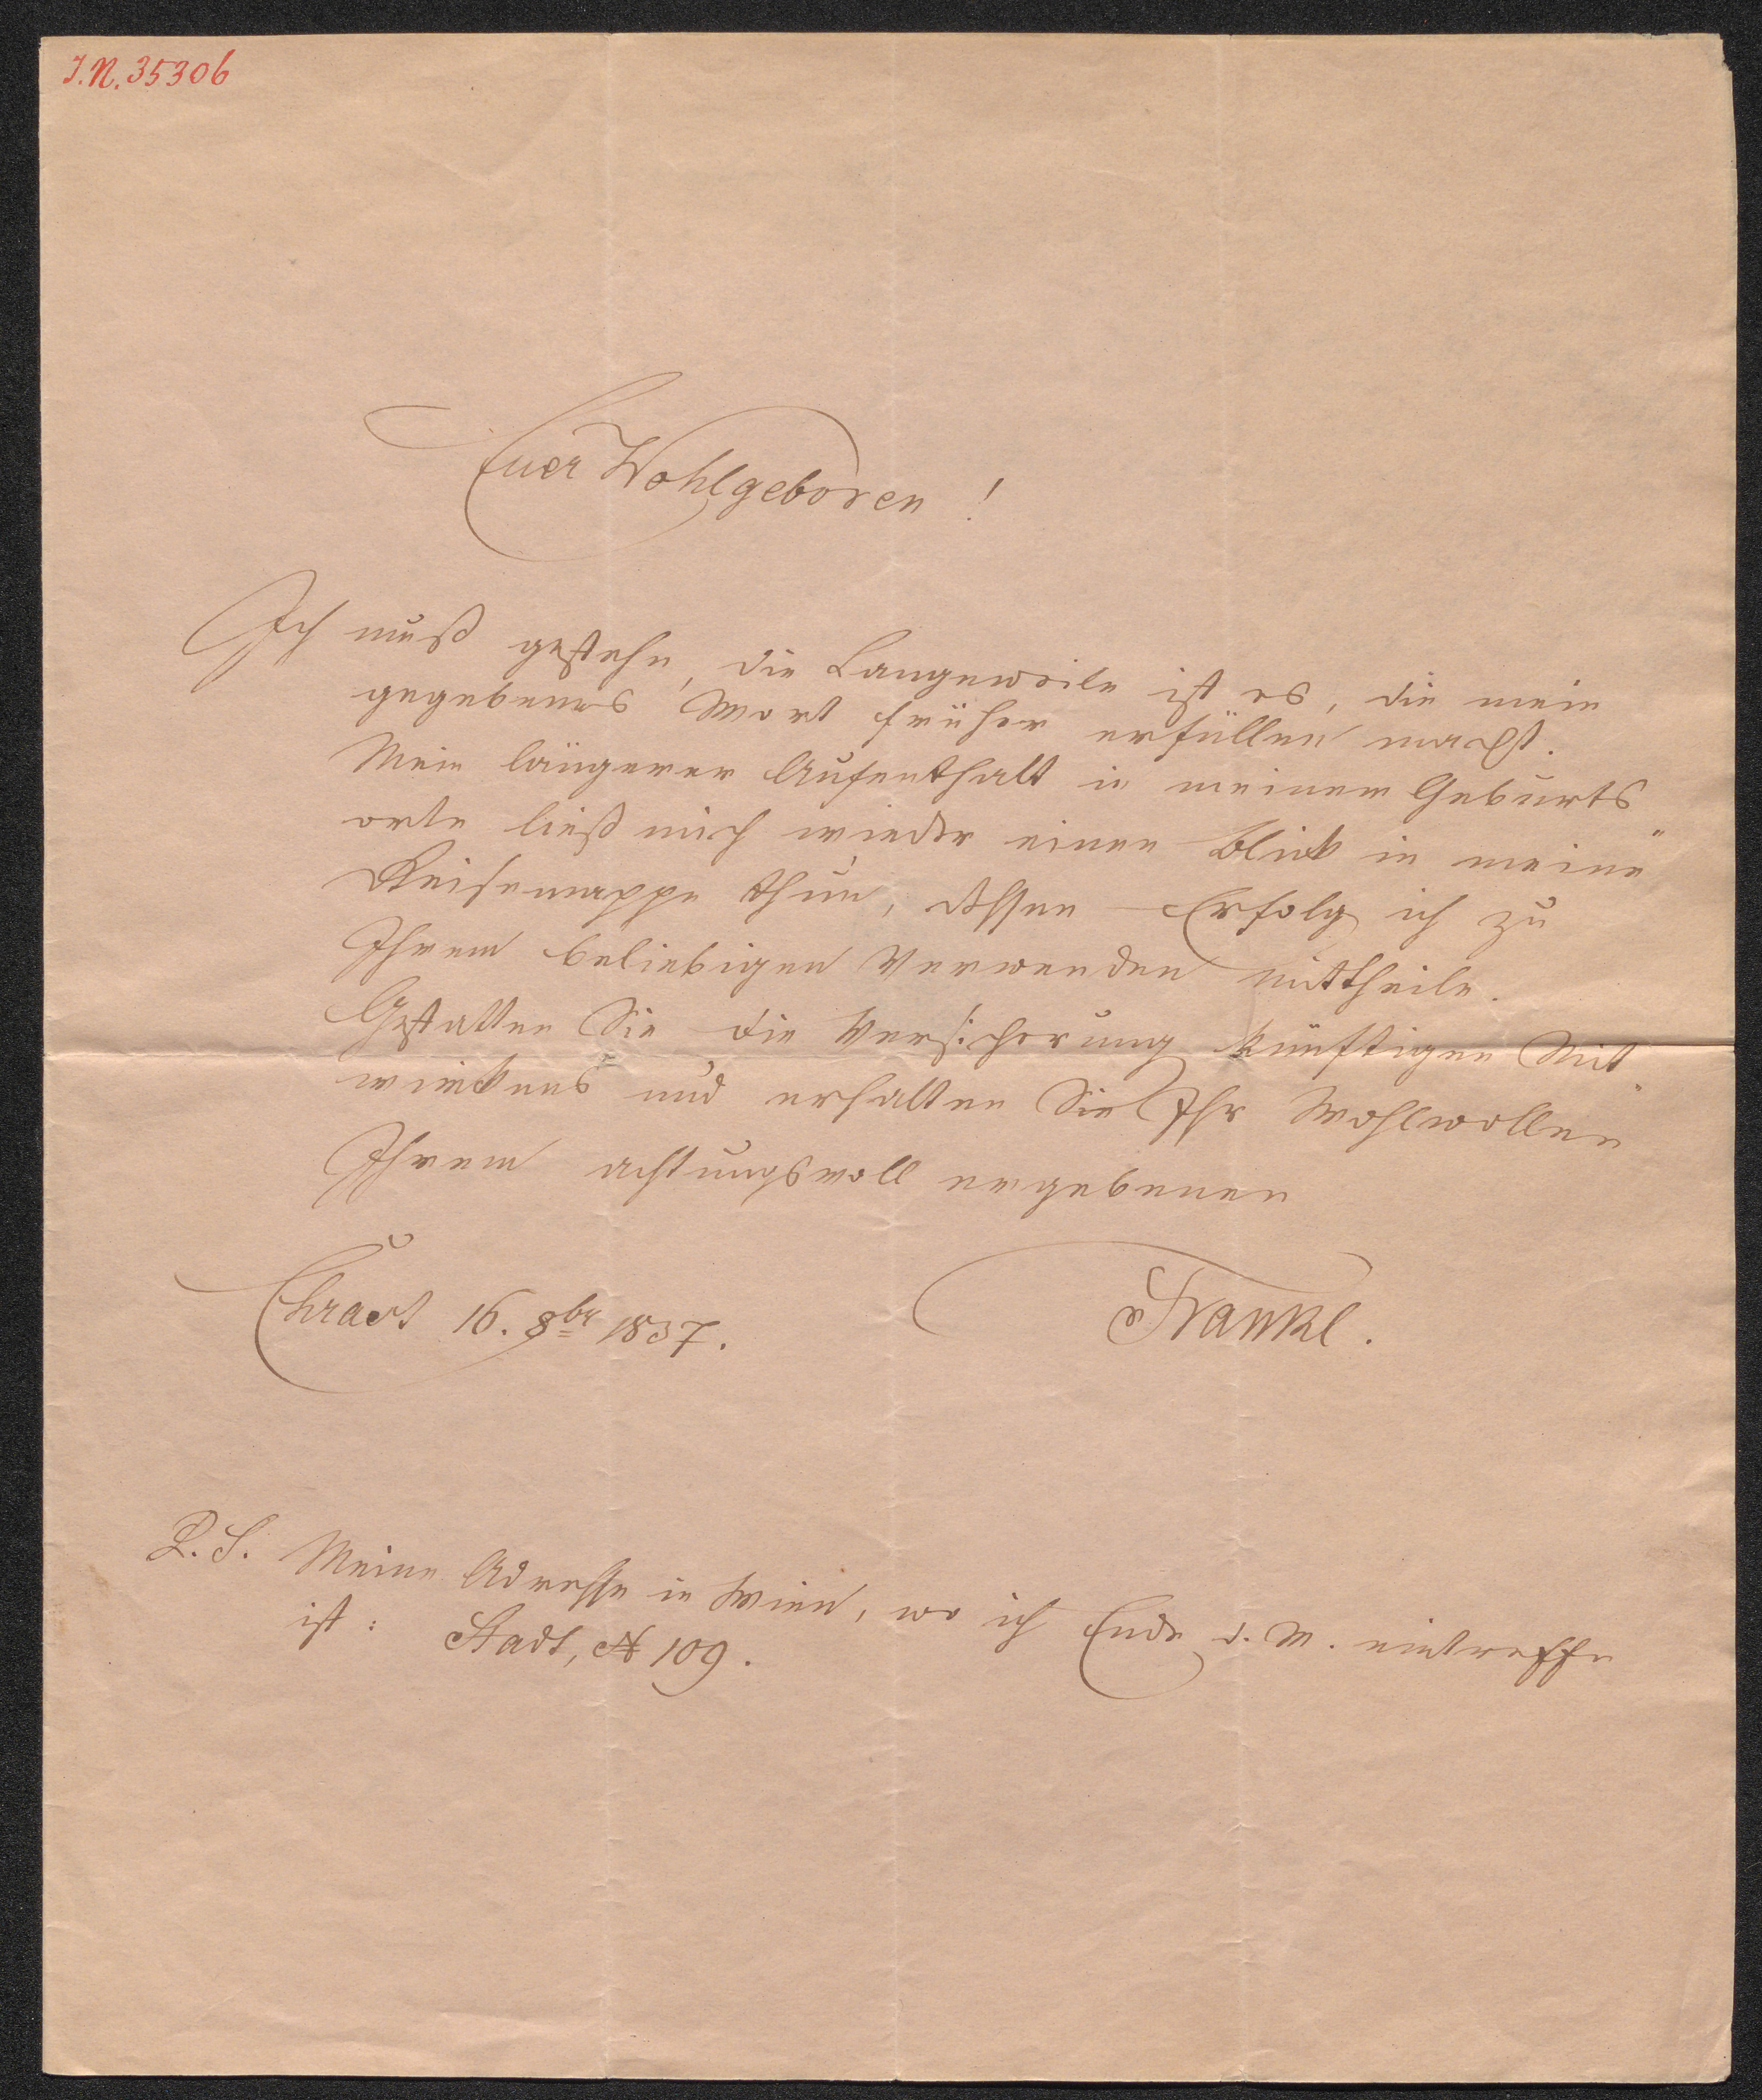 J.N. 35306
Euer Wohlgeboren!
Ich muß gestehn, die Langeweile ist es, die mein
gegebenes Wort früher erfüllen macht.
Mein längerer Aufenthalt in meinem Geburts"
orte ließ mich wieder einen Blick in meine
Reisemappe thun, dessen Erfolg ich zu
Ihrem beliebigen Verwenden mittheile.
Gestatten Sie die Versicherung künftigen Mit"
wirkens und erhalten Sie Ihr Wohlwollen
Ihrem achtungsvoll ergebenen
Chrast 16. 8br 1837.
Frankl.
P.S. Meine Adresse in Wien, wo ich Ende d. M. eintreffe
ist: Stadt, N 109.